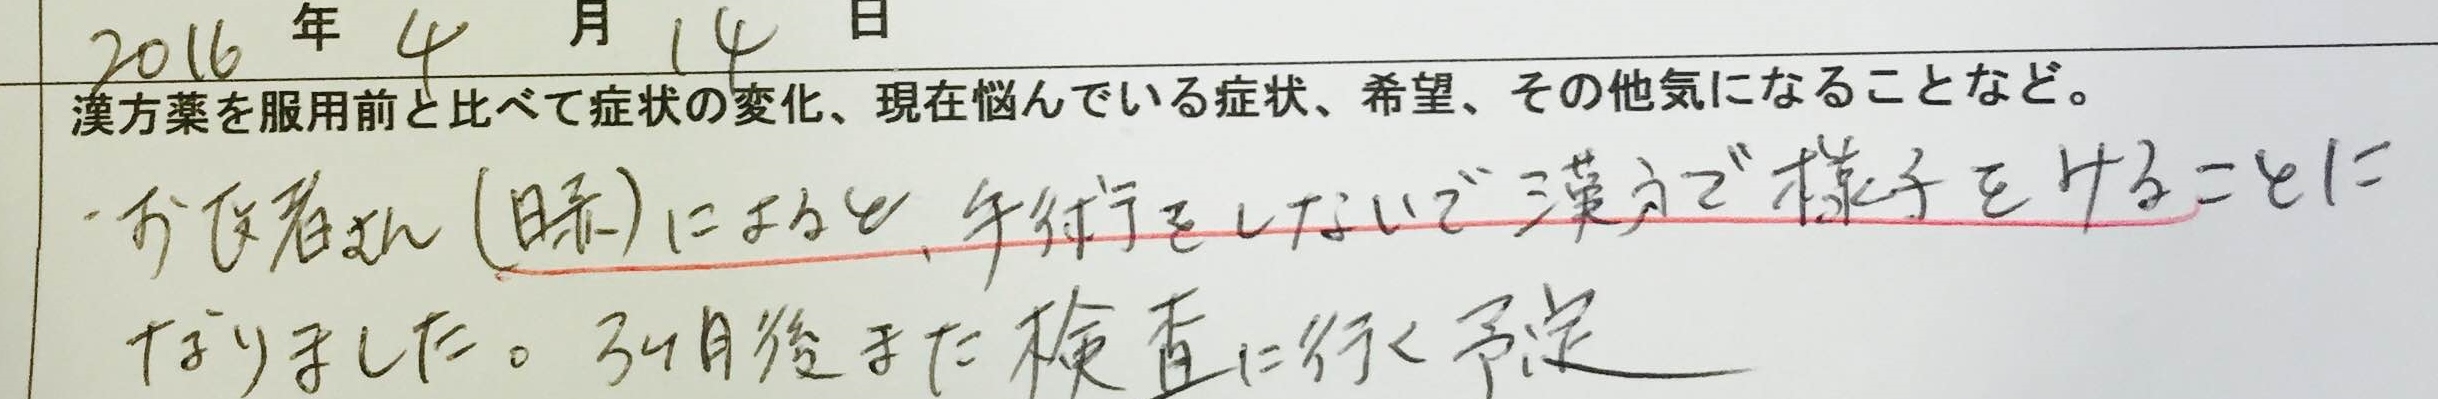 2016年4月14日
漢方薬を服用前と比べて症状の変化、現在悩んでいる症状、希望、その他気になることなど。
・お医者さん(日赤)によると、手術をしないで漢方で様子をみることに
なりました。3ヶ月後また検査に行く予定